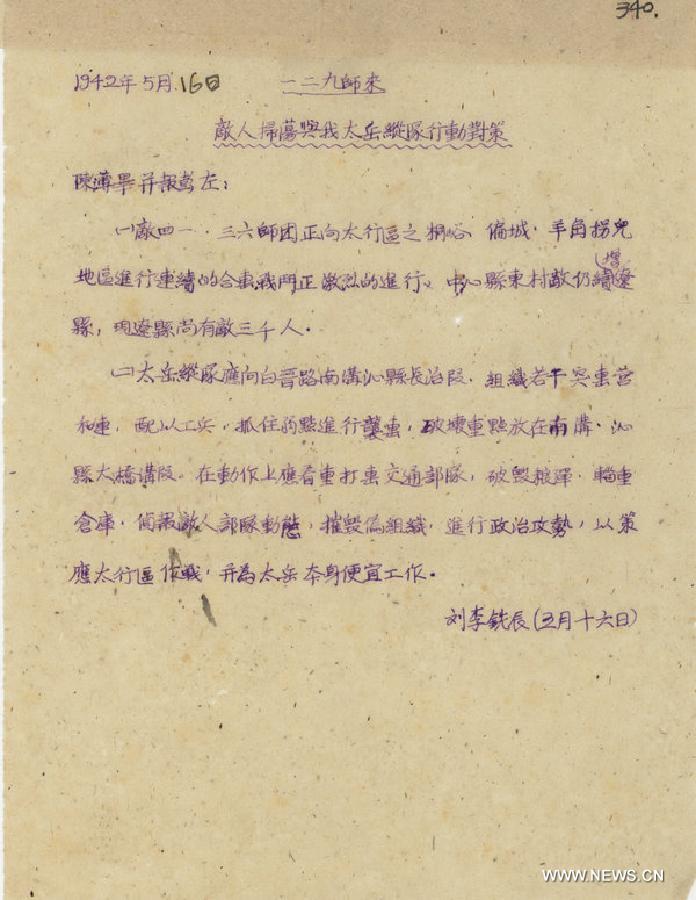 340.
1942年5月16日 一二九師來
敵人掃蕩與我太岳縱隊行動對策
陳薄畢并報彭左:
㈠敵四一.三六師团正向太行區之桐峪.偏城.羊角拐兒
地區進行連續的合击,戰鬥正激烈的進行。中心縣東村敵仍續增遼
縣,現遼縣尚有敵三千人.
㈡太岳縱隊應向白晋路南溝沁縣長治段.組織若干突击营
和連,配以工兵,抓住弱點進行襲击,破壞重點放在南溝.沁
縣大橋溝段.在動作上應着重打击交通部隊,破毀搬運.輜重
倉庫.偵報敵人部隊動態,摧毀偽組織.進行政治攻勢,以策
應太行區作戰,并為太岳本身便宜工作.
刘李銑辰(五月十六日)
WWW.NEWS.CN